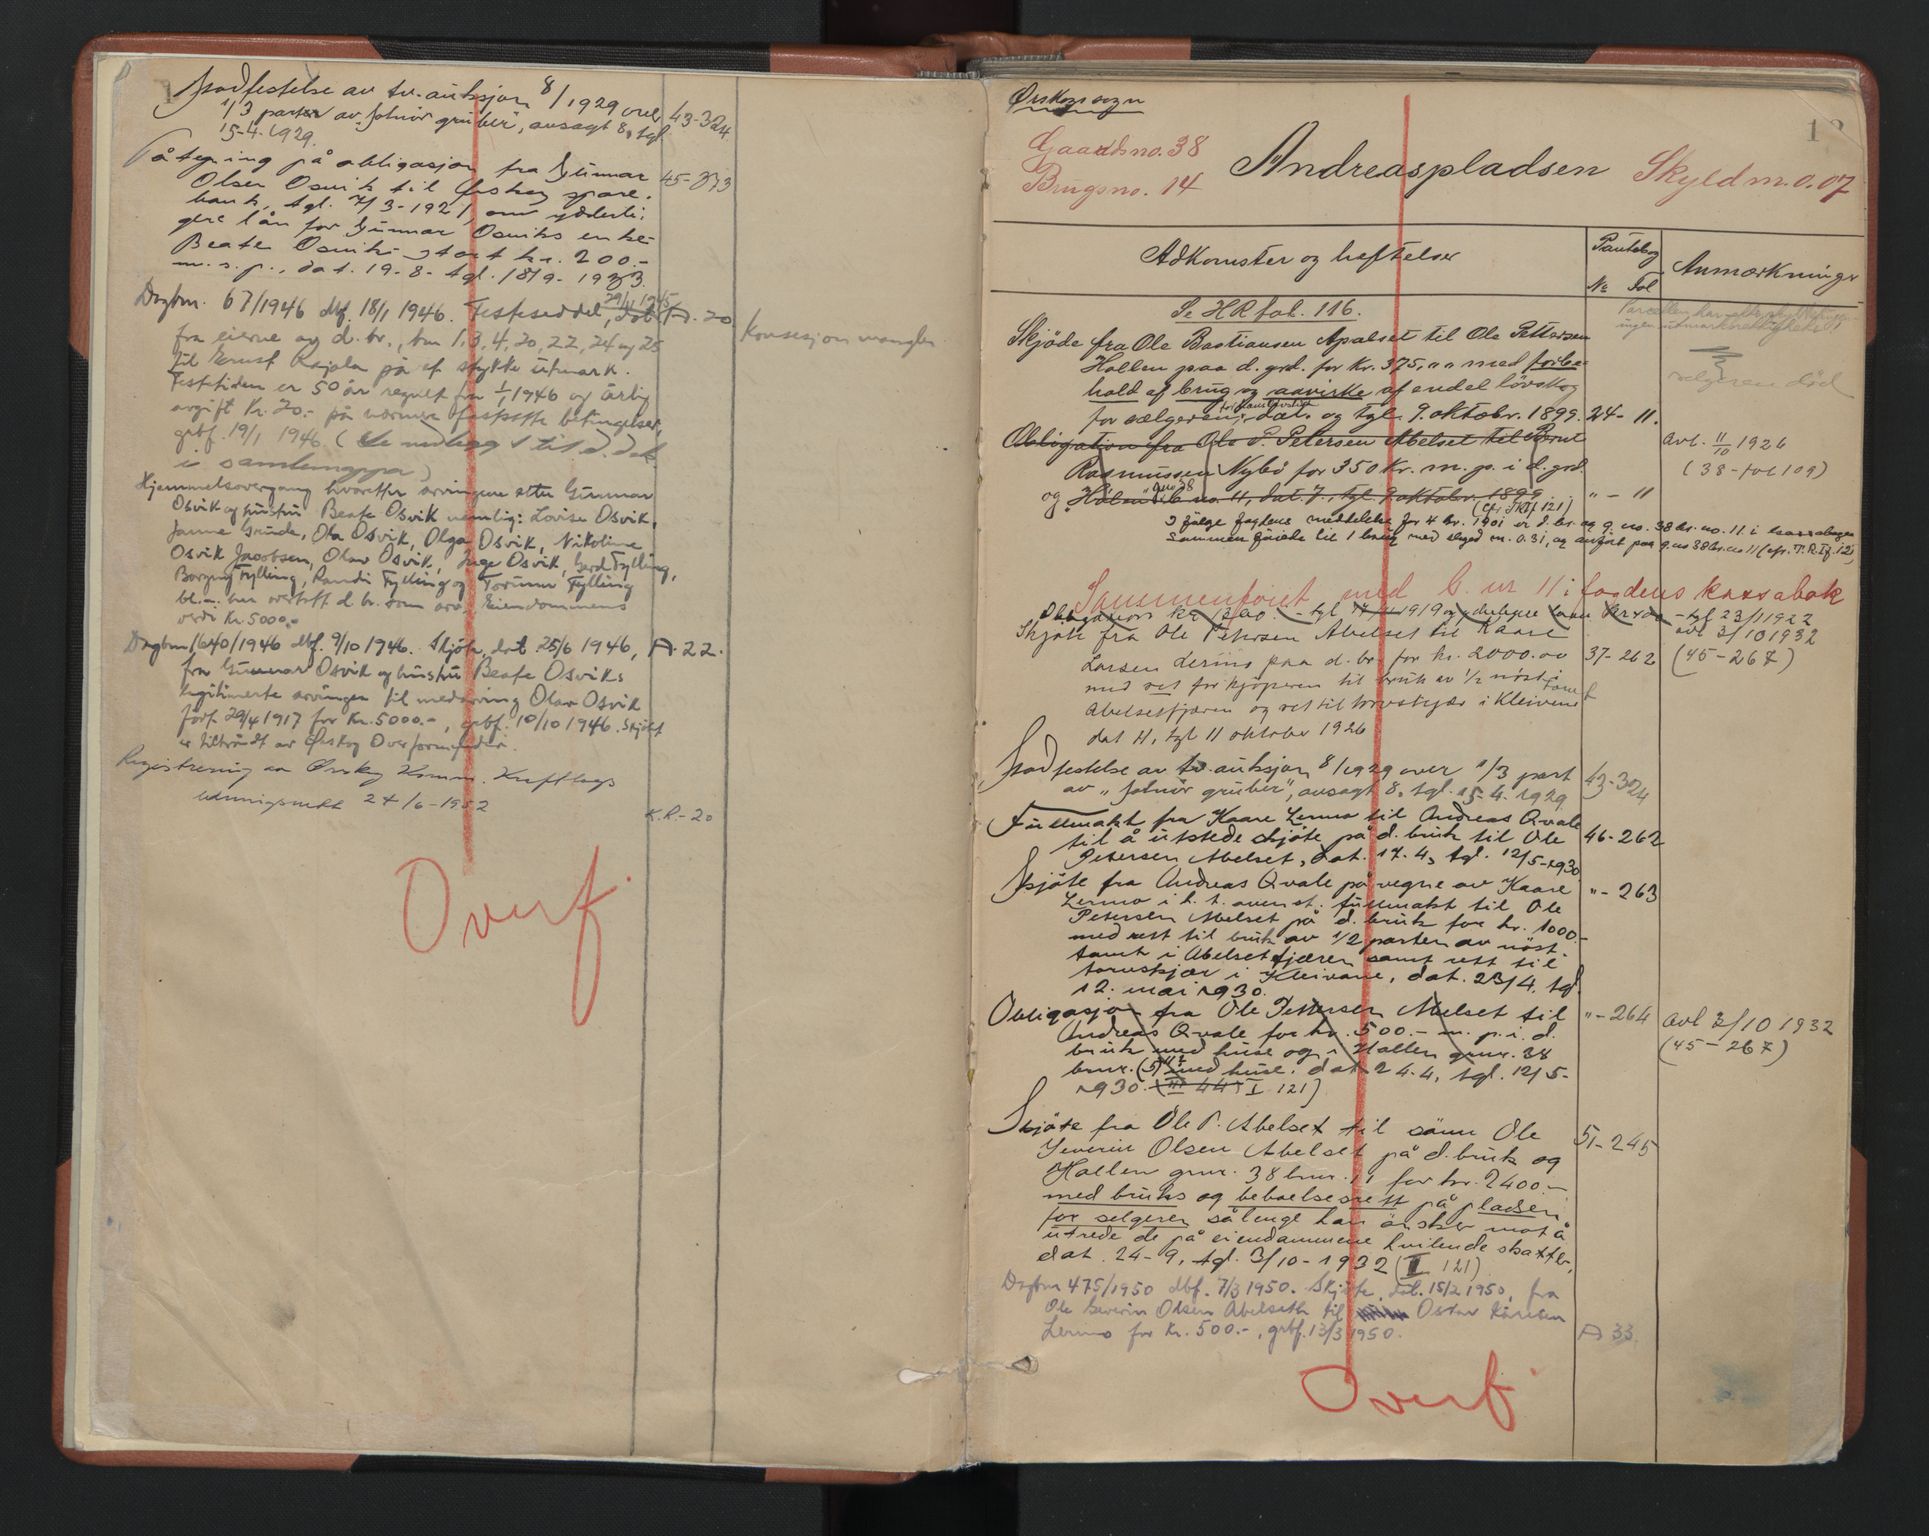 Stadfestelse av tv. auksjon 8/1929 over 43-324
1/3 parter av "Jotnör gruber", avsagt 8, tgl.
15-4-1929.
Påtegning på obligasjon fra Gunnar 45-
Olsen Osvik til Ørskog spare-
bank, tgl. 7/3-1921, om ydderli-
gere lån for Gunnar Osviks enke
Beate Osvik stort kr. 200.-
m. s. p., dat. 19-8- tgl.
Dagbnr. 67/1946 dbf. 18/1 1946. Festeseddel, dat. 29/11 1945 A. 20 Konsesjon mangler
fra eierne av d. br., bnr 1, 3, 4, 20, 22, 24 og 25
til Ernst på et stykke utmark.
Festetiden er 50 år regnet fra 1/1 1946 og årlig
avgift kr. 20.- på nærmere fastsatte betingelser,
grbf. 19/1 1946. (Se innlegg 1 til d. dok
i samlemappa)
Hjemmelsovergang hvoretter arvingene etter Gunnar
Osvik og hustru Beate Osvik nemlig: Lovise Osvik,
Janne Grinde, Ola Osvik, Olga Osvik, Nikoline
Osvik Jacobsen, Olav Osvik, Inge Osvik, Gerd Fylling,
Borgny Fylling, Randi Fylling og Torunn Fylling
bl. a. har overtatt d. br. som arv. Eiendommens
verdi kr. 5000.-
Dagbnr 1640/1946 dbf. 9/10 1946. Skjöte, dat. 25/6 1946, A. 22.
fra Gunnar Osvik og hustru Beate Osviks
legitimerte arvinger til medarving Olav Osvik
född 29/4 1917 for kr. 5000.-, grbf. 10/10 1946. Skjötet
er tiltrådt av Ørskog Overformynderi.
Registrering av Ørskog Komm. Kraftlags
ledningsnett 24/6-1952 K.R.-20
Overf.
Ørskog sogn
12
Gaardsno. 38 Andreaspladsen Skyld m. 0.07
Brugsno. 14
Adkomster og heftelser Pantebog Anmærkninger
No Fol
Se HR fol. 116.
Skjöde fra Ole Bastiansen Apalset til Ole Pettersen
Hollen paa d. grd. for Kr. 375,,, med forbe-
hold af brug og aavirke af endel lövskog selgeren död
for sælgeren, dat. og tgl. 9. oktobr. 1899. 24- 11.
Obligation fra Ole P. Petersen Abelset til Bernt Avl. 11/10 1926
Rasmussen Nybö for 350 Kr. m. p. i d. grd. (38-fol 109)
og "Holen" gno 38 b. no. 11, dat. 7, tgl. 9. oktobr. 1899 " - 11
(cfr. THI 121)
I følge fogdens meddelelse for 4 br. 1901 er d. br. og g. no. 38 br. no. 11 i kassabogen
sammenføiede til 1 brug med skyld m. 0.31, og anført paa g. no 38 br. no 11 (cfr. T.R. I f. 121)
Sammenföiet med b. nr 11 i fogdens kassabok
Obligasjon kr 1200.- tgl 1919 og ydderligere laan - tgl 23/1 1922
Skjöte fra Ole Petersen Abelset til Kaare avl 3/10 1932
Larsen Lermo paa d. br. for kr. 2000.00 37-262 (45-267)
med ret for kjöperen til bruk av 1/2 nöst i tomt
Abelsetfjæren og ret til torvskjær i Kleivene
dat 11, tgl 11 oktober 1926
Stadfestelse av tv. auksjon 8/1929 over 1/3 part 43-324
av "Jotnör gruber", avsagt 8, tgl. 15-4-1929.
Fullmakt fra Kaare Lermo til Andreas Qvale
til å utstede skjöte på d. bruk til Ole 46-262
Petersen Abelset, dat. 17. 4, tgl. 12/5-1930
Skjöte fra Andreas Qvale på vegne av Kaare "-263
Lermo i h. t. ovenst. fullmakt til Ole
Petersen Abelset på d. bruk for kr. 1000.-
med rett til bruk av 1/2 parten av nöst-
tomt i Abelsetfjæren samt rett til
torvskjær i Kleivane, dat. 23/4. tgl.
12. mai 1930.
Obligasjon fra Ole Pettersen Abelset til "-264 avl 3/10 1932
Andreas Qvale for kr. 500.- m. p. i d. (45-267)
bruk med huse og i Hallen gnr. 38
bnr. 11 med huse, dat. 24. 4, tgl. 12/5-
1930. (I 121)
Skjöte fra Ole P. Abelset til sönn Ole 51-245
Severin Olsen Abelset på d. bruk og
Hallen gnr. 38 bnr. 11 for kr. 2400.-
med bruks og beboelsesrett på pladsen
for selgeren sålenge han önsker mot å
utrede de på eiendommene hvilende skatter,
dat. 24-9, tgl. 3/10-1932 (II 121)
Dagbnr 475/1950 dbf. 7/3 1950. Skjöte, dat. 15/2 1950, fra
Ole Severin Olsen Abelseth til Oskar Kåresen
Lermo for kr. 500.-, grbf. 13/3 1950. A 33.
Overf.